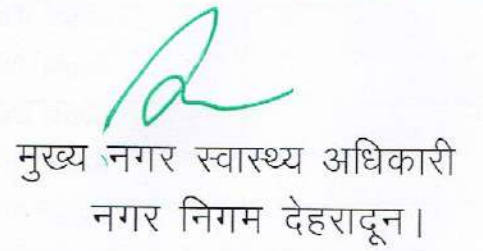 मुख्य नगर स्वास्थ्य अधिकारी
नगर निगम देहरादून।